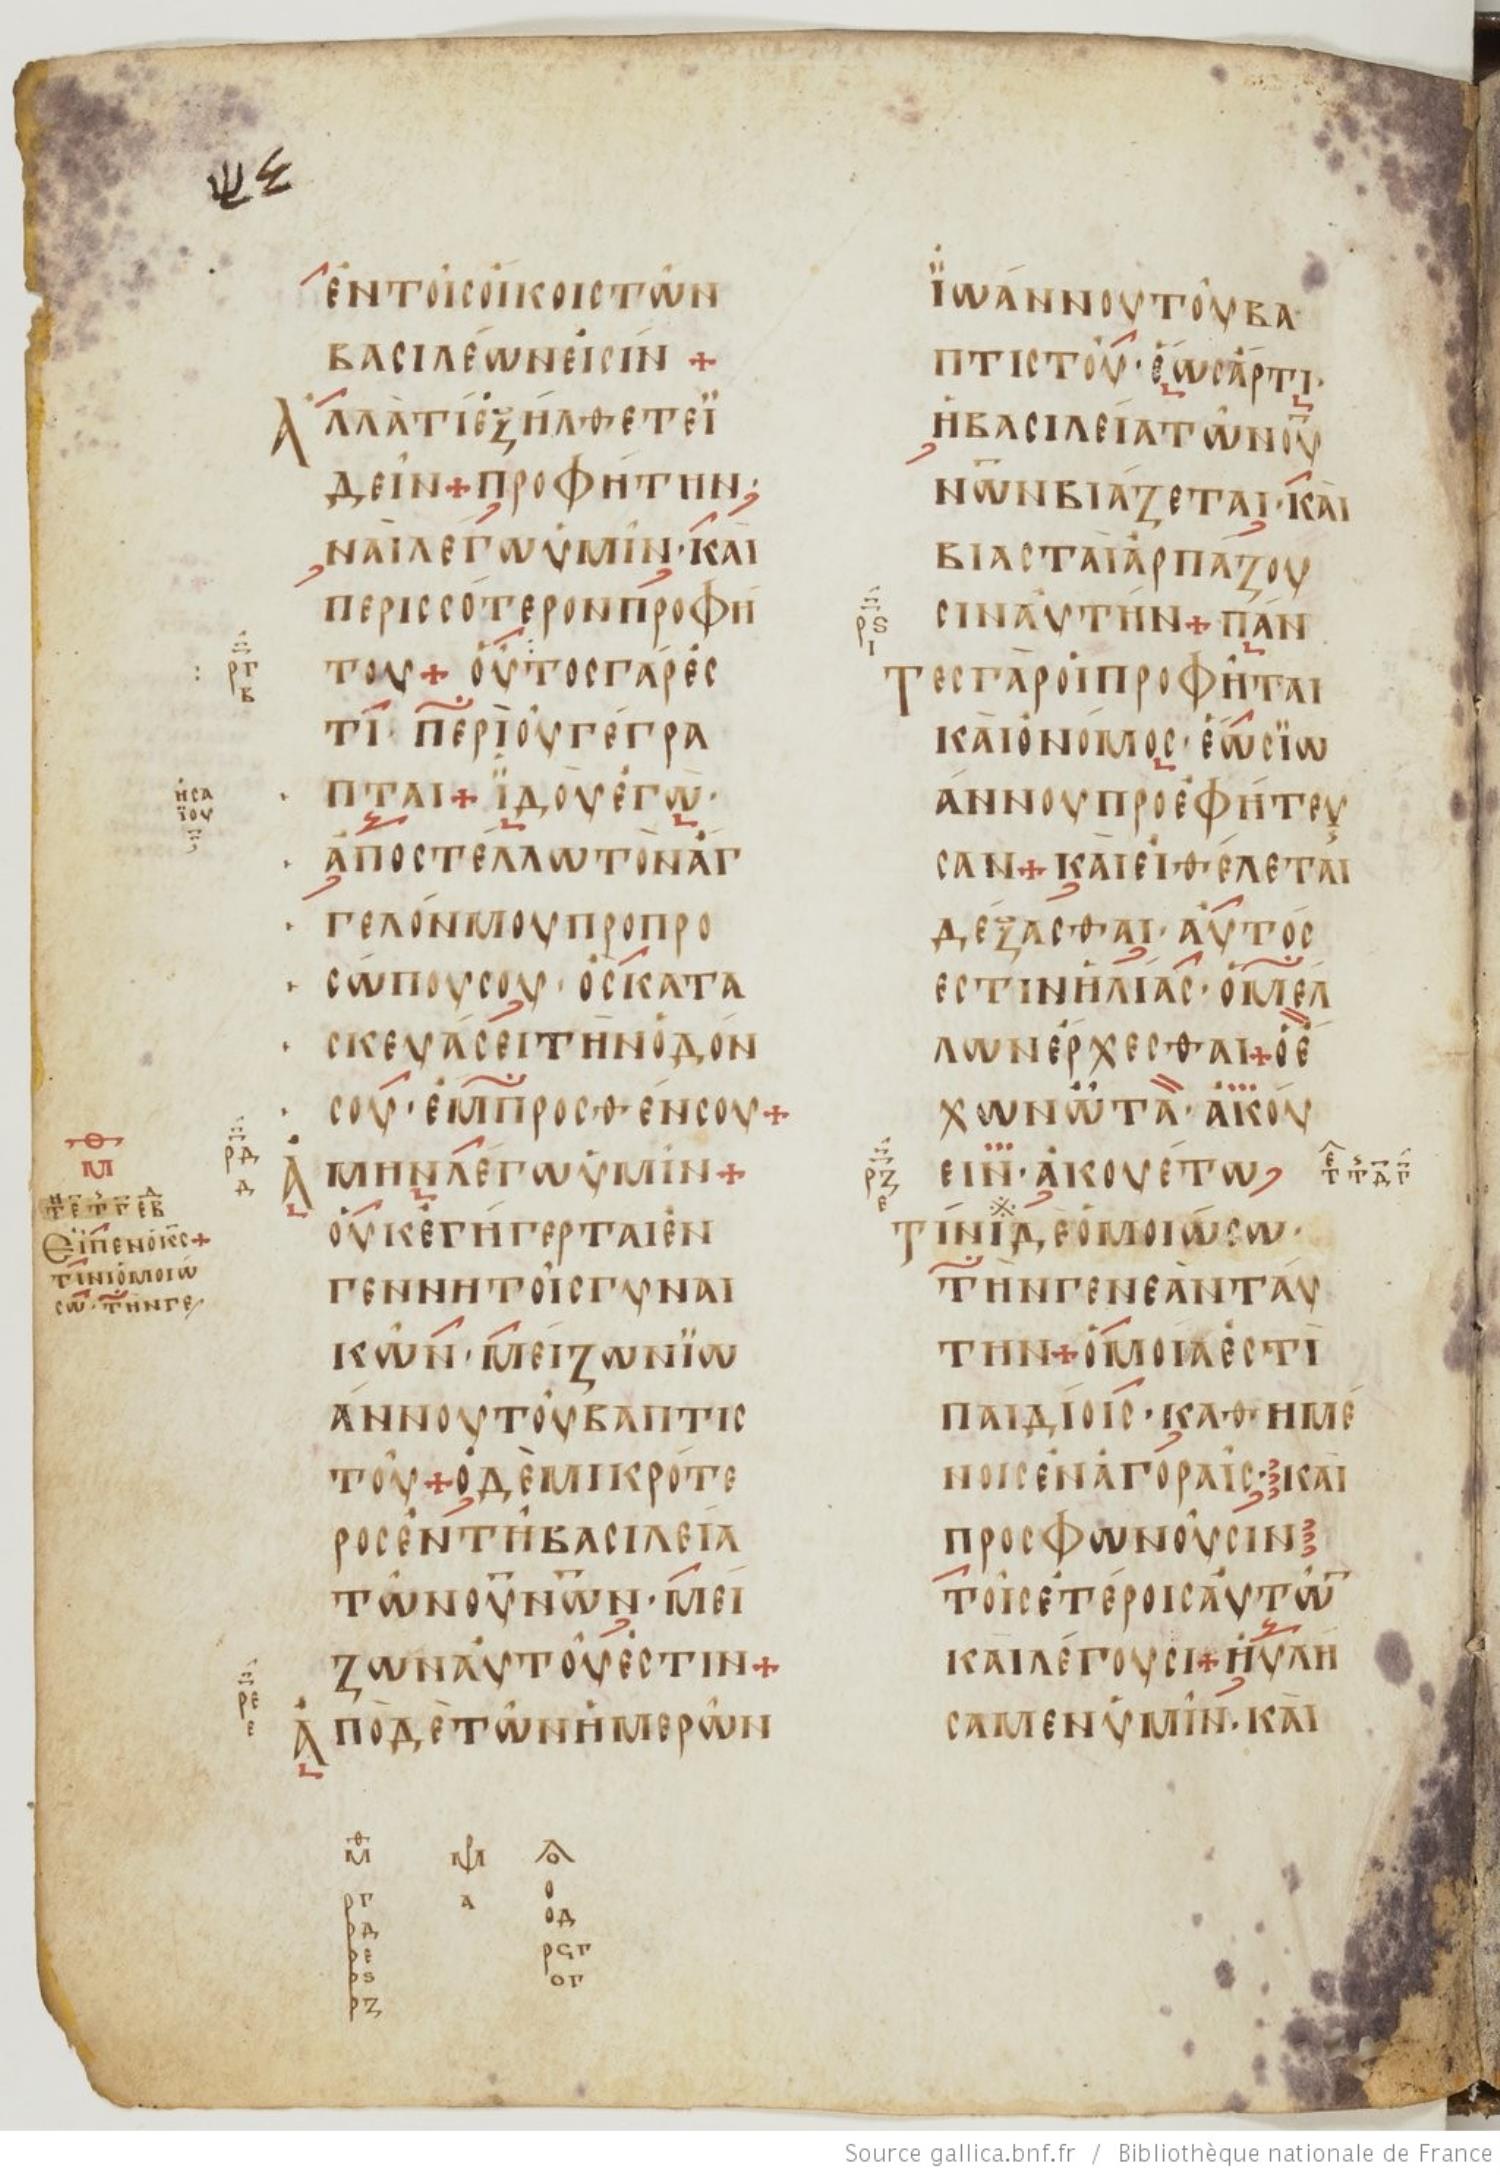 ἐντοῖσοἴκοιστῶν
βασιλέωνεἰσίν +
Ἀλλὰτίἐξήλθετεϊ
δεῖν+προφήτην·
ναὶλέγωὑμῖν·καὶ
περισσότερονπροφή
του+ οὗτοσγάρἐσ
τϊ· περὶοὗγέγρα
πται+ ϊδοὺἐγὼ·
ἀποστέλλωτὸνἄγ
γελόνμουπροπρο
σώπουσου· ὃςκατα
σκευάσειτὴνὁδόν
σου· ἔμπροσθένσου+
Ἀμηνλέγωὑμῖν+
οὐκἐγήγερταιἐν
γεννητοῖσγυναι
κῶν· μείζωνϊω
άννουτοῦβαπτισ
τοῦ+ὁδὲμικρότε
ροσἐντῆβασιλεία
τῶνοὐνῶν· μεί
ζωναὐτοῦἐστιν+
Ἀπὸδὲτῶνἡμερῶν
ϊωάννουτοῦβα
πτιστοῦ· ἕωσἄρτι·
ἡβασιλείατῶνοὐ
νῶνβιάζεται· καὶ
βιασταὶἁρπάζου
σιναὐτήν+ πάν
τεσγὰροἱπροφῆται
καὶὁνόμος· ἕωσϊω
άννουπροἐφήτευ
σαν+ καὶεἰθέλεται
δέξασθαι· αὐτός
ἐστινἡλίας· ὁμέλ
λωνἔρχεσθαι+ὁἔ
χωνὦτα· ἀκού
ειν· ἀκουέτω
τίνϊδεὁμοιώσω·
τὴνγενεὰνταύ
την+ὁμοίαἐστὶ
παιδίοις· καθημέ
νοισἐνἀγοραῖς· καὶ
προσφωνοῦσιν
τοῖσἑτέροισαὐτῶ
καὶλέγουσι+ηὐλή
σαμενὑμῖν· καὶ
ργ
β
ἠσα
ϊου
ρδ
δ
Μ
Εἶπενὁκς+
τίνιὁμοιώ
σω· τὴνγε
ρε
ε
ρϛ
ι
ρζ
ε
Μ
ργ
ρδ
ρε
ρϛ
ρζ
α
ο
οδ
ογ
Source gallica.bnf.fr / Bibliothèque nationale de France